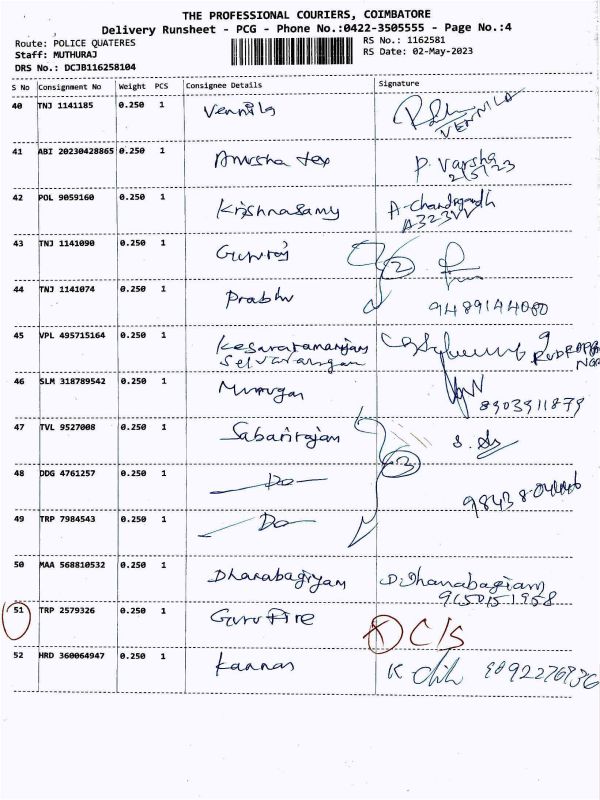 THE PROFESSIONAL COURIERS, COIMBATORE
Delivery Runsheet - PCG - Phone No.:0422-3505555 - Page No.:4
Route: POLICE QUATERES
RS No.: 1162581
Staff: MUTHURAJ
RS Date: 02-May-2023
DRS No.: DCJB116258104
S No Consignment No Weight PCS Consignee Details Signature
40 TNJ 1141185 0.250 1 Vennila
VENNILA
41 ABI 20230428865 0.250 1 Anusha tex P. Varsha
2/5/23
42 POL 9059160 0.250 1 Krishnasamy A-Chandragandh
43 TNJ 1141090 0.250 1 Gururaj 2
44 TNJ 1141074 0.250 1 Prabhu 9489144080
45 VPL 495715164 0.250 1 Kesavaramanujam
Selvarangan
46 SLM 318789542 0.250 1 Murugan
8903911879
47 TVL 9527008 0.250 1 Sabarirajan
3
48 DDG 4761257 0.250 1 Do
49 TRP 7984543 0.250 1 Do
50 MAA 568810532 0.250 1 Dhanabagiyam D. Dhanabagiam
9150151958
51 TRP 2579326 0.250 1 Guru Fire
C/S
52 HRD 360064947 0.250 1 Kannan K